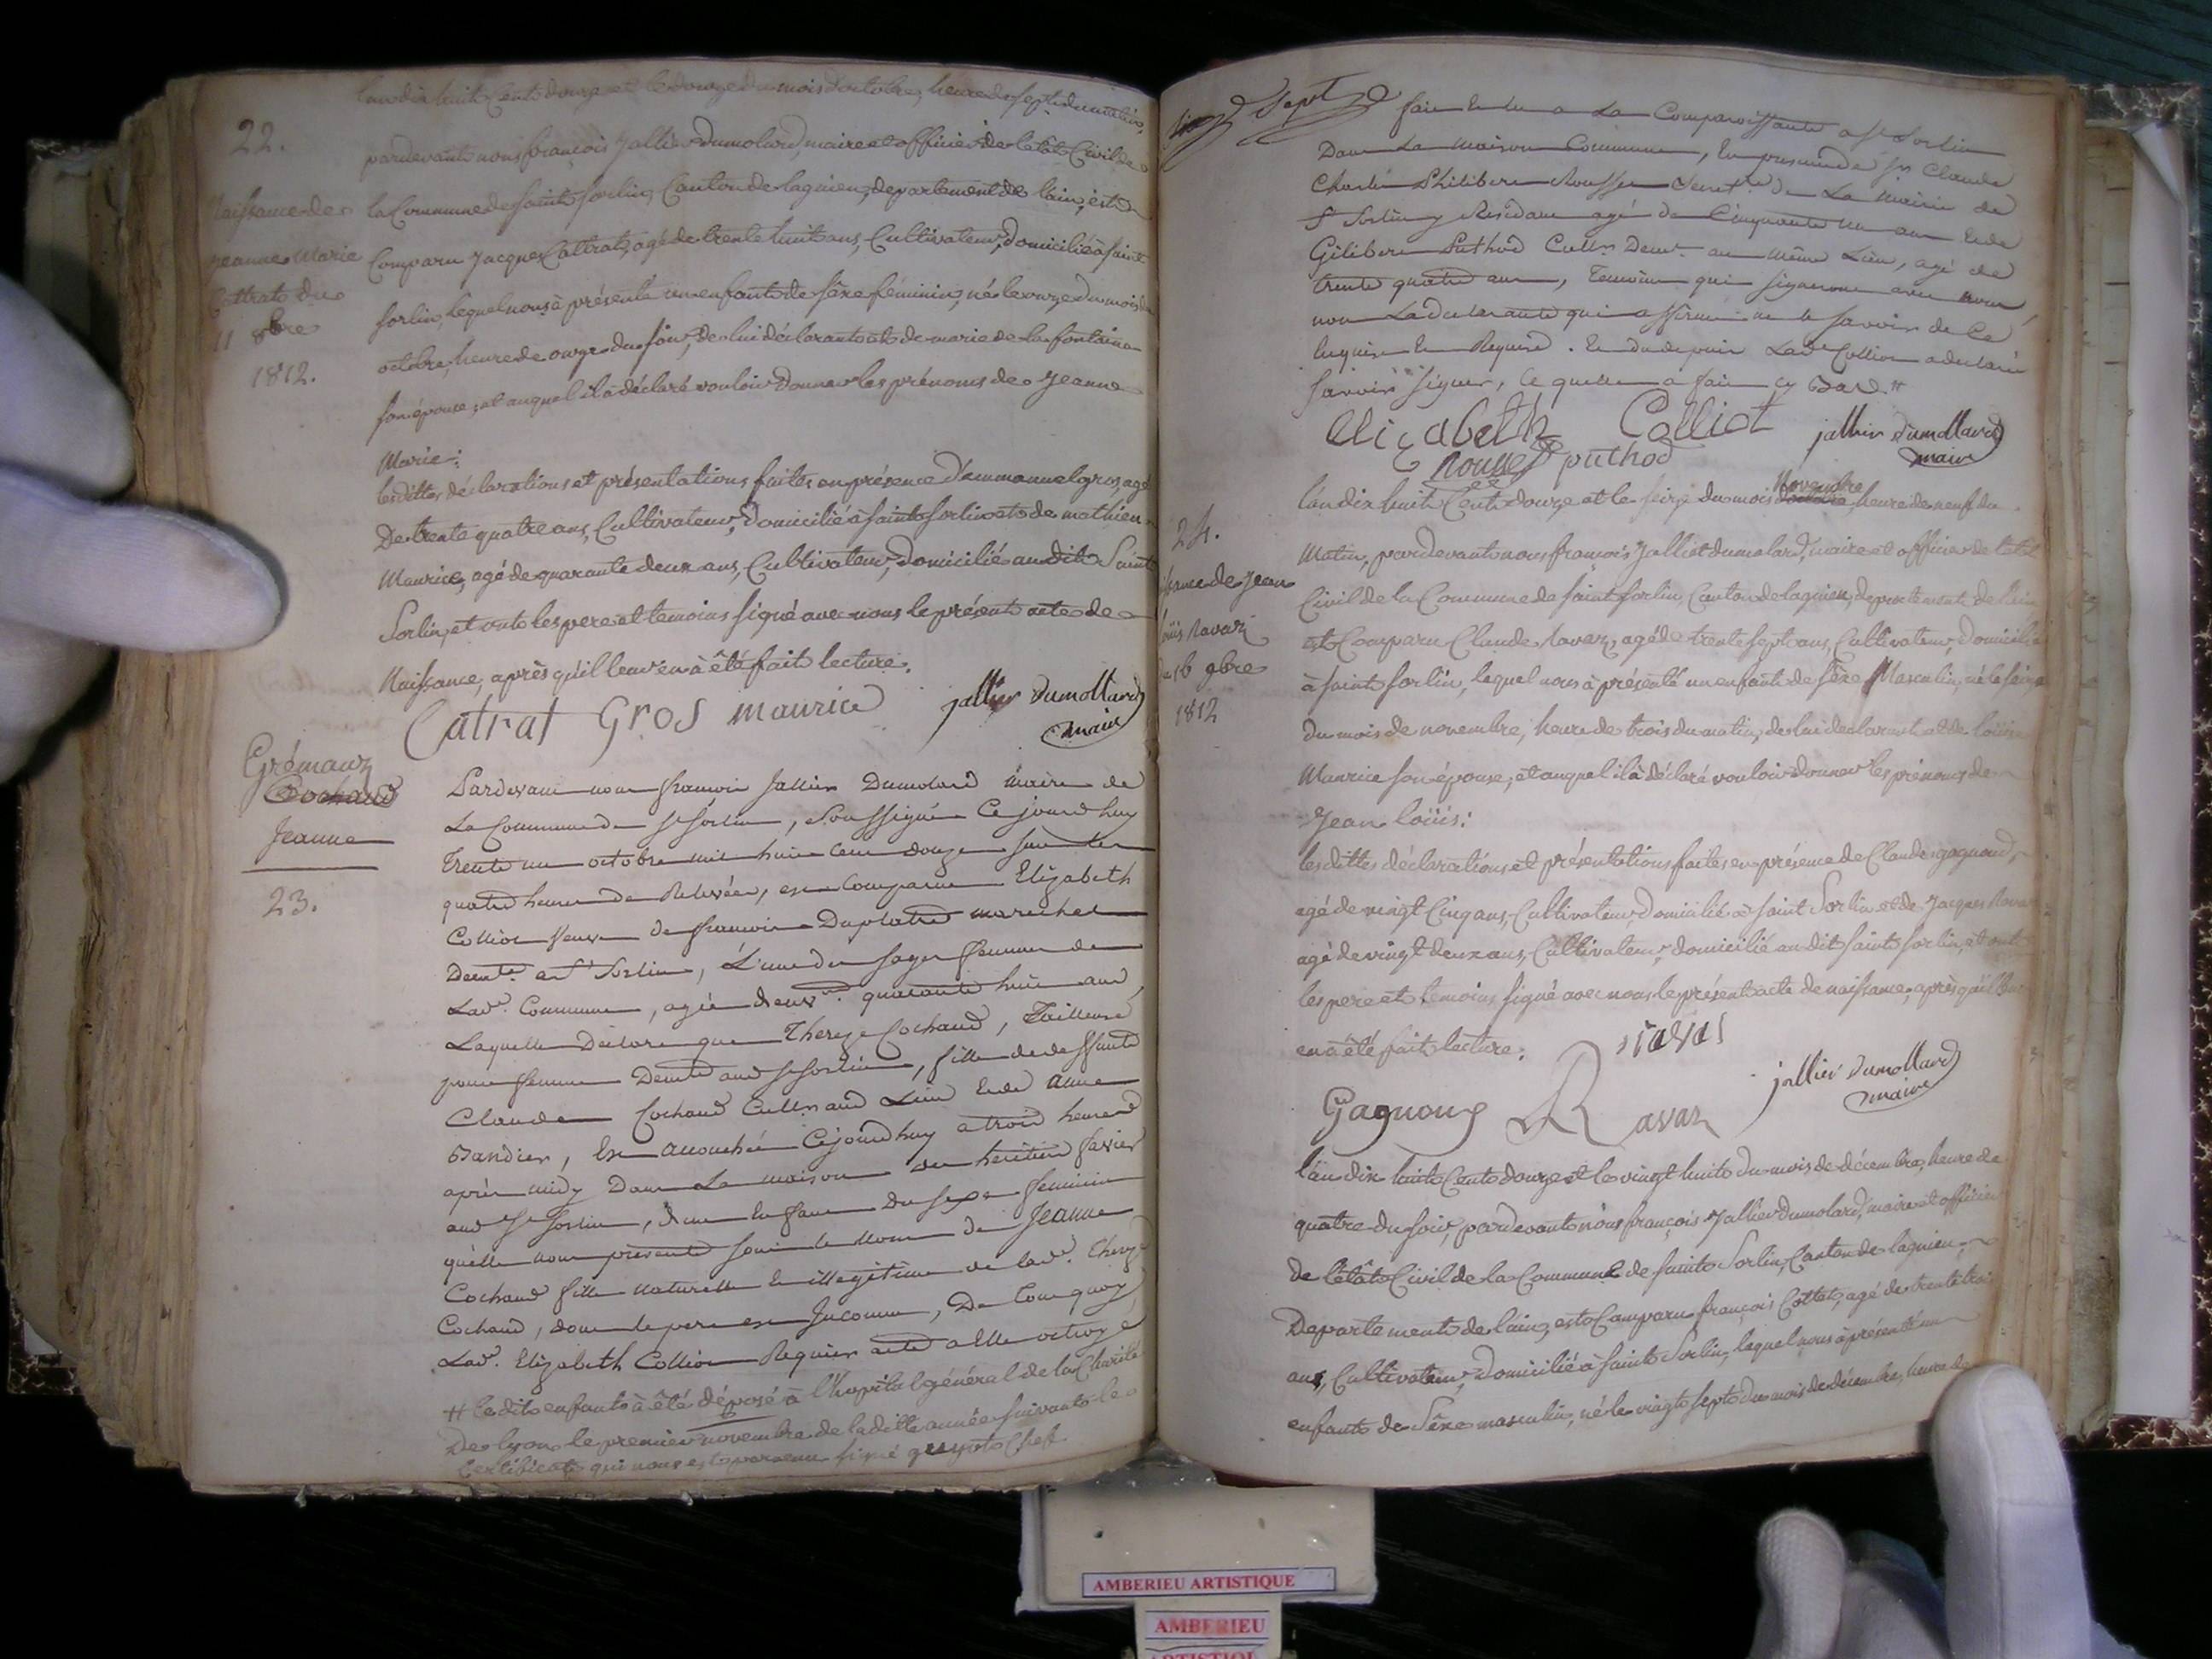 l'an dix huit Cent douze et le douze du mois d'octobre, heure de sept du matin,
22.
pardevant nous françois Jallier Dumolard, maire et officier de l'êtât Civil de
la Commune de saint sorlin, Canton de lagnieu, departement de l'ain, est
Naissance de
Jeanne Marie
Cattrat du
11 8bre
1812.
Comparu Jacques Cattrat, agé de trente huit ans, Cultivateur, domicilié à saint
sorlin, lequel nous à présenté un enfant de sêxe féminin, né le onze du mois d'
octobre, heure de onze du soir, de lui déclarant et de marie de la fontaine
son épouse, et auquel il à déclaré vouloir donner les prénoms de Jeanne
Marie:
lesdittes déclarations et présentations faites en présence d'emmanuel gros, agé
De trente quatre ans, Cultivateur, domicilié à saint sorlin et de mathieu
Maurice, agé de quarante deux ans, Cultivateur, domicilié au dit Saint
Sorlin, et ont les pere et temoins signé avec nous le présent acte de
Naissance, après qu'il leur en à êté fait lecture.
Catrat Gros maurice jallier dumollard
maire
Grémaux
Cochand
Jeanne
23.
Pardevant nous françois Jallier Dumolard maire de
La Commune de St Sorlin, Soussigné Ce jourd'huy
Trente un octobre mil huit cent douze sur les
quatre heures de Relevée, est Comparue Elizabeth
Colliot veuve de françois Duplatre marechal
Demte. a St Sorlin, L'une des sages femmes de
Lade. Commune, agée d'envn. quarante huit ans,
Laquelle Déclare que Thereze Cochand, Tailleuse
pour femme Demte aud St Sorlin, fille de deffunt
Claude Cochand Cultr aud Lieu et de Anne
Bandier, est accouchée Cejourd'huy a trois heures
après midy Dans La maison des heritiers favier
aud St Sorlin, d'un Enfant du sexe feminin
qu'elle nous présente sous le Nom de Jeanne
Cochand fille naturelle et illegitime de lade. Thereze
Cochand, dont le pere est Inconnu, De Tout quoy
Lade. Elizabeth Colliot Requiert acte a Elle octroyé
# le dit enfant à êté déposé à l'hopital général de la Charité
De lyon le premier novembre de laditte année suivant le
Certificat qui nous est parvenu signé Chef
Sept
fait et lu a La Comparoissante a St Sorlin
Dans La maison Commune, En presence de Srs Claude
Charles Philibert Rousset Secretre. de La Mairie de
St Sorlin y Résidant agé de Cinquante un ans et de
Gilibert Puthod Cultr. Demt. au même Lieu, agé de
trente quatre ans, Temoins qui signeront avec nous,
non La declarante qui a affirmé ne le savoir de Ce
Enquise et Requise. Et du depuis Lade Colliot a declaré
savoir signer, Ce quelle a fait cy Bas #
Elizabeth Colliot jallier dumollard
Rousset puthod maire
24.
l'an dix huit Cent douze et le seize du mois d'octobre Novembre, heure de neuf du
Matin, pardevant nous françois Jallier dumolard, maire et officier de l'êtât
Civil de la Commune de saint sorlin, Canton de lagnieu, departement de l'ain
Naissance de Jean
loüis Ravaz
du 16 9bre
1812
est Comparu Claude Ravaz, agé de trente sept ans, Cultivateur, domicilié
à saint sorlin, lequel nous à présenté un enfant de sêxe Masculin, né le seize
du mois de novembre, heure de trois du matin, de lui déclarant et de loüise
Maurice son épouse, et auquel il à déclaré vouloir donner les prénoms de
Jean loüis:
lesdittes déclarations et présentations faites en présence de Claude gagnoud,
agé de vingt Cinq ans, Cultivateur, domicilié à saint Sorlin et de Jacques Ravaz
agé de vingt deux ans, Cultivateur, domicilié au dit saint sorlin, et ont
les pere et temoins signé avec nous le présent acte de naissance, après qu'il leur
en à êté fait lecture.
Gagnoux Ravaz jallier dumollard
maire
l'an dix huit Cent douze et le vingt huit du mois de décembre, heure de
quatre du soir, pardevant nous françois Jallier Dumolard, maire et officier
de l'êtât Civil de la Commune de saint Sorlin, Canton de lagnieu,
Departement de l'ain, est Comparu françois Cottet, agé de trente trois
ans, Cultivateur, domicilié à saint Sorlin, lequel nous à présenté un
enfant de Sêxe masculin, né le vingt sept du mois de décembre, heure de
AMBERIEU ARTISTIQUE
AMBERIEU
ARTISTIQUE